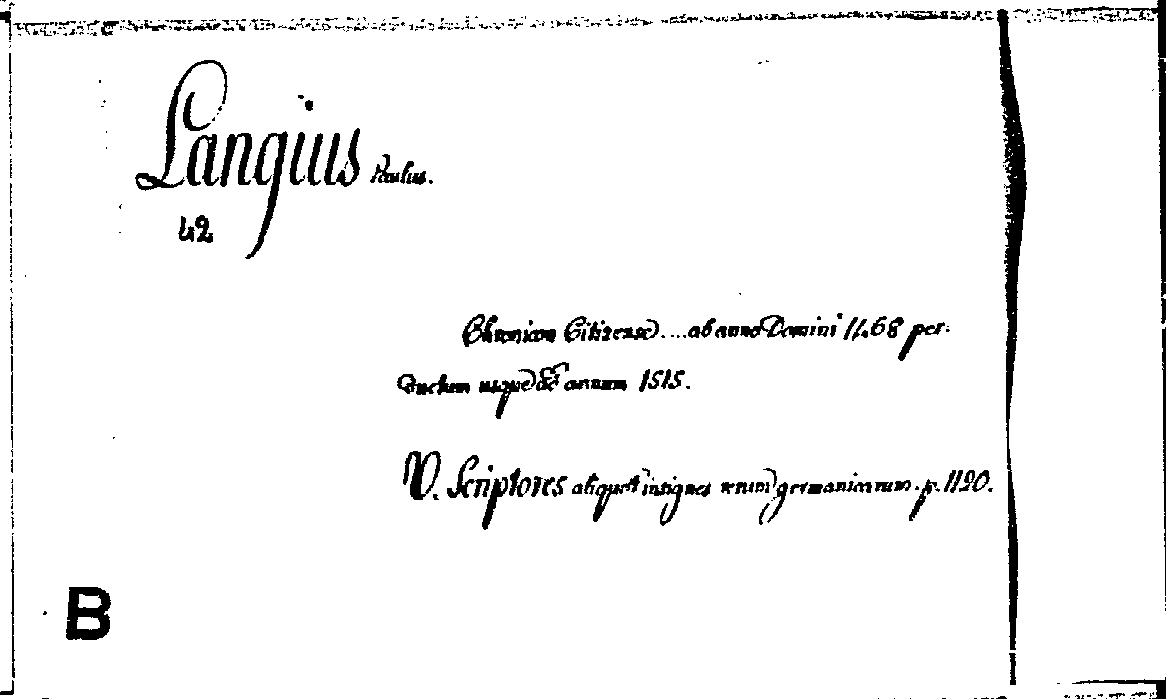 Langius Paulus.
42
Chronicon Citizense .... ab anno Domini 1468 per-
ductum usque ad annum 1515.
V. Scriptores aliquot insignes rerum germanicarum. p. 1120.
B